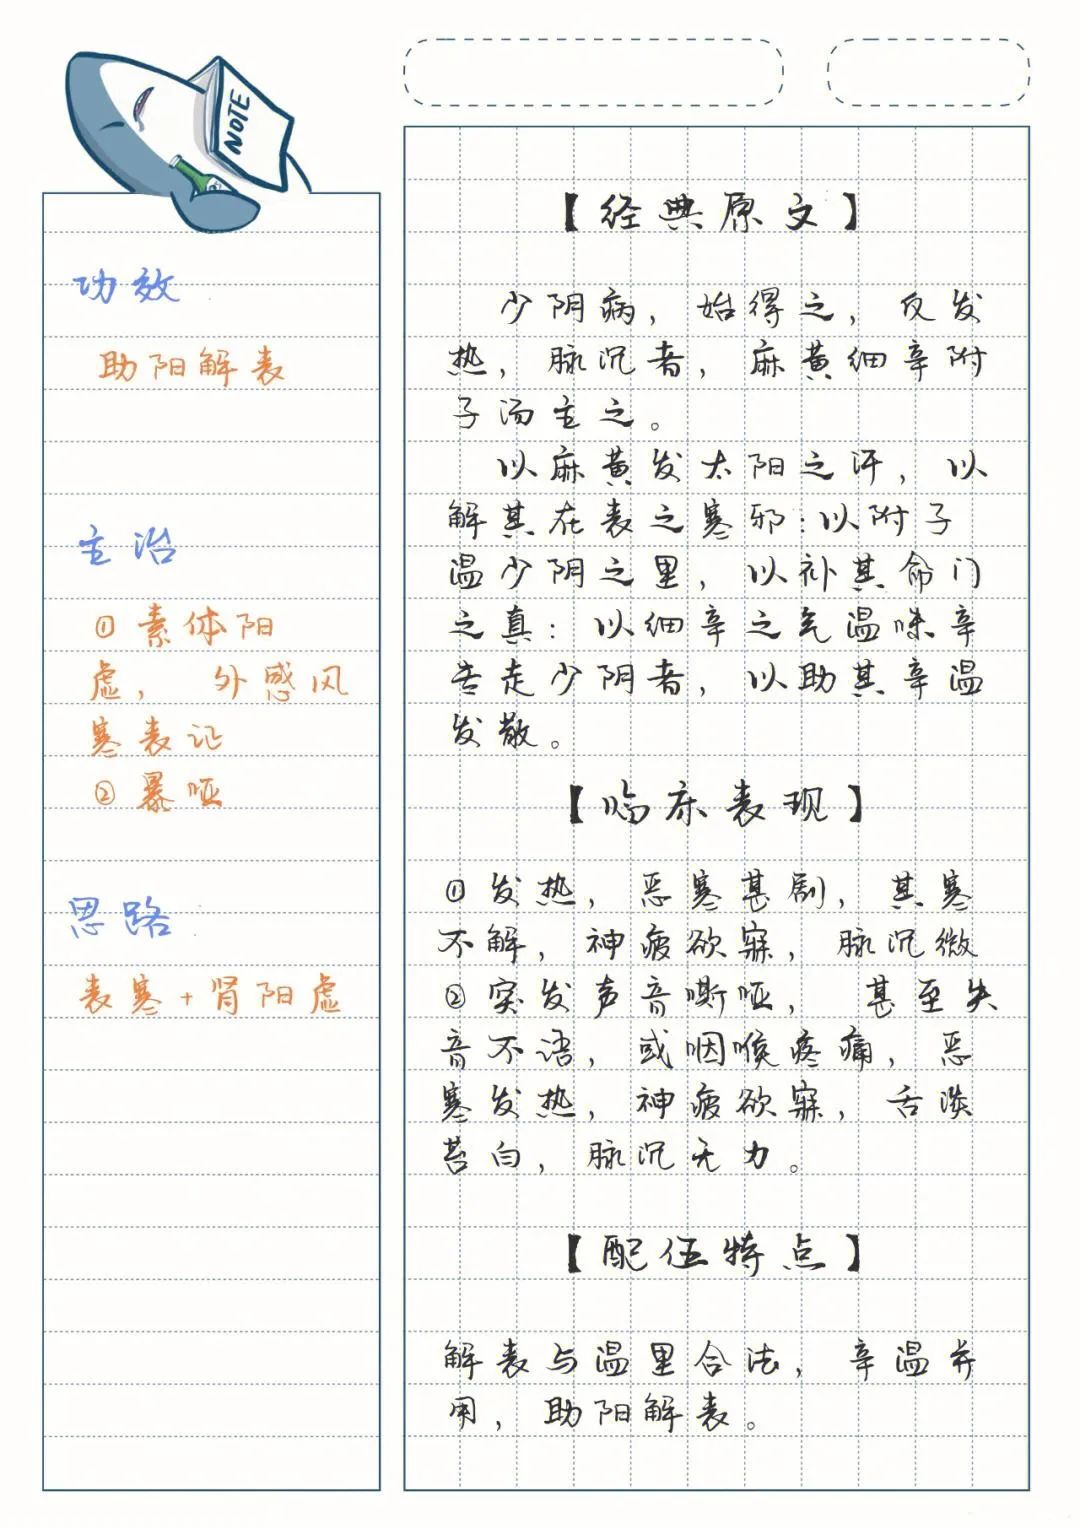 NOTE
功效
助阳解表
主治
①素体阳
虚，外感风
寒表证
②暴哑
思路
表寒+肾阳虚
【经典原文】
少阴病，始得之，反发
热，脉沉者，麻黄细辛附
子汤主之。
以麻黄发太阳之汗，以
解其在表之寒邪：以附子
温少阴之里，以补其命门
之真：以细辛之气温味辛
苦走少阴者，以助其辛温
发散。
【临床表现】
①发热，恶寒甚剧，其寒
不解，神疲欲寐，脉沉微
②突发声音嘶哑，甚至失
音不语，或咽喉疼痛，恶
寒发热，神疲欲寐，舌淡
苔白，脉沉无力。
【配伍特点】
解表与温里合法，辛温并
用，助阳解表。